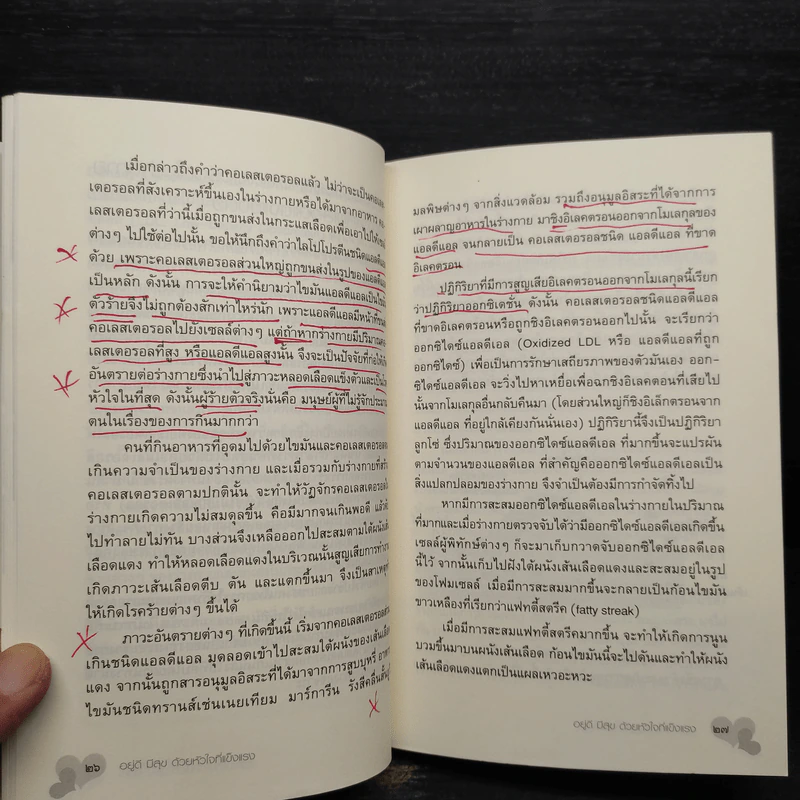 เมื่อกล่าวถึงคำว่าคอเลสเตอรอลแล้ว ไม่ว่าจะเป็นคอเลส
เตอรอลที่สังเคราะห์ขึ้นเองในร่างกายหรือได้มาจากอาหาร
เลสเตอรอลที่ว่านี้เมื่อถูกขนส่งในกระแสเลือดเพื่อเอาไปให้เซลล์
ต่างๆ ไปใช้ต่อไปนั้น ขอให้นึกถึงคำว่าไลโปโปรตีนชนิดแอลดีแอล
ด้วย เพราะคอเลสเตอรอลส่วนใหญ่ถูกขนส่งในรูปของแอลดีแอล
เป็นหลัก ดังนั้น การจะให้คำนิยามว่าไขมันแอลดีแอลเป็นไขมัน
ตัวร้ายจึงไม่ถูกต้องสักเท่าไหร่นัก เพราะแอลดีแอลมีหน้าที่ขนส่ง
คอเลสเตอรอลไปยังเซลล์ต่างๆ แต่ถ้าหากร่างกายมีปริมาณคอ
เลสเตอรอลที่สูง หรือแอลดีแอลสูงนั้น จึงจะเป็นปัจจัยที่ก่อให้เกิด
อันตรายต่อร่างกายซึ่งนำไปสู่ภาวะหลอดเลือดแข็งตัวและเป็น
หัวใจในที่สุด ดังนั้นผู้ร้ายตัวจริงนั่นคือ มนุษย์ผู้ที่ไม่รู้จักประมาณ
ตนในเรื่องของการกินมากกว่า
คนที่กินอาหารที่อุดมไปด้วยไขมันและคอเลสเตอรอล
เกินความจำเป็นของร่างกาย และเมื่อรวมกับร่างกายที่สร้าง
คอเลสเตอรอลตามปกตินั้น จะทำให้วัฏจักรคอเลสเตอรอล
ร่างกายเกิดความไม่สมดุลขึ้น คือมีมากจนเกินพอดี แล้ว
ไปทำลายไม่ทัน บางส่วนจึงเหลือออกไปสะสมตามใต้ผนังเส้น
เลือดแดง ทำให้หลอดเลือดแดงในบริเวณนั้นสูญเสียการทำงาน
เกิดภาวะเส้นเลือดตีบ ตัน และแตกขึ้นมา จึงเป็นสาเหตุ
ให้เกิดโรคร้ายต่างๆ ขึ้นได้
ภาวะอันตรายต่างๆ ที่เกิดขึ้นนี้ เริ่มจากคอเลสเตอรอลส่วน
เกินชนิดแอลดีแอล มุดลอดเข้าไปสะสมใต้ผนังของเส้นเลือด
แดง จากนั้นถูกสารอนุมูลอิสระที่ได้มาจากการสูบบุหรี่
ไขมันชนิดทรานส์เช่นเนยเทียม มาร์การีน รังสีคลื่นสั้น
๒๖ อยู่ดี มีสุข ด้วยหัวใจที่แข็งแรง
มลพิษต่างๆ จากสิ่งแวดล้อม รวมถึงอนุมูลอิสระที่ได้จากการ
เผาผลาญอาหารในร่างกาย มาชิงอิเลคตรอนออกจากโมเลกุลของ
แอลดีแอล จนกลายเป็น คอเลสเตอรอลชนิด แอลดีแอล ที่ขาด
อิเลคตรอน
ปฏิกิริยาที่มีการสูญเสียอิเลคตรอนออกจากโมเลกุลนี้เรียก
ว่าปฏิกิริยาออกซิเดชั่น ดังนั้น คอเลสเตอรอลชนิดแอลดีแอล
ที่ขาดอิเลคตรอนหรือถูกชิงอิเลคตรอนออกไปนั้น จะเรียกว่า
ออกซิไดซ์แอลดีเอล (Oxidized LDL หรือ แอลดีแอลที่ถูก
ออกซิไดซ์) เพื่อเป็นการรักษาเสถียรภาพของตัวมันเอง ออก-
ซิไดซ์แอลดีเอล จะวิ่งไปหาเหยื่อเพื่อฉกชิงอิเลคตอนที่เสียไป
นั้นจากโมเลกุลอื่นกลับคืนมา (โดยส่วนใหญ่ก็ชิงอิเล็กตรอนจาก
แอลดีแอล ที่อยู่ใกล้เคียงกันนั่นเอง) ปฏิกิริยานี้จึงเป็นปฏิกิริยา
ลูกโซ่ ซึ่งปริมาณของออกซิไดซ์แอลดีเอล ที่มากขึ้นจะแปรผัน
ตามจำนวนของแอลดีเอล ที่สำคัญคือออกซิไดซ์แอลดีเอลเป็น
สิ่งแปลกปลอมของร่างกาย จึงจำเป็นต้องมีการกำจัดทิ้งไป
หากมีการสะสมออกซิไดซ์แอลดีเอลในร่างกายในปริมาณ
ที่มากและเมื่อร่างกายตรวจจับได้ว่ามีออกซิไดซ์แอลดีเอลเกิดขึ้น
เซลล์ผู้พิทักษ์ต่างๆ ก็จะมาเก็บกวาดจับออกซิไดซ์แอลดีเอล
นี้ไว้ จากนั้นเก็บไปฝังใต้ผนังเส้นเลือดแดงและสะสมอยู่ในรูป
ของโฟมเซลล์ เมื่อมีการสะสมมากขึ้นจะกลายเป็นก้อนไขมัน
ขาวเหลืองที่เรียกว่าแฟทตี้สตรีค (fatty streak)
เมื่อมีการสะสมแฟทตี้สตรีคมากขึ้น จะทำให้เกิดการนูน
บวมขึ้นมาบนผนังเส้นเลือด ก้อนไขมันนี้จะไปดันและทำให้ผนัง
เส้นเลือดแดงแตกเป็นแผลเหวอะหวะ
อยู่ดี มีสุข ด้วยหัวใจที่แข็งแรง ๒๗